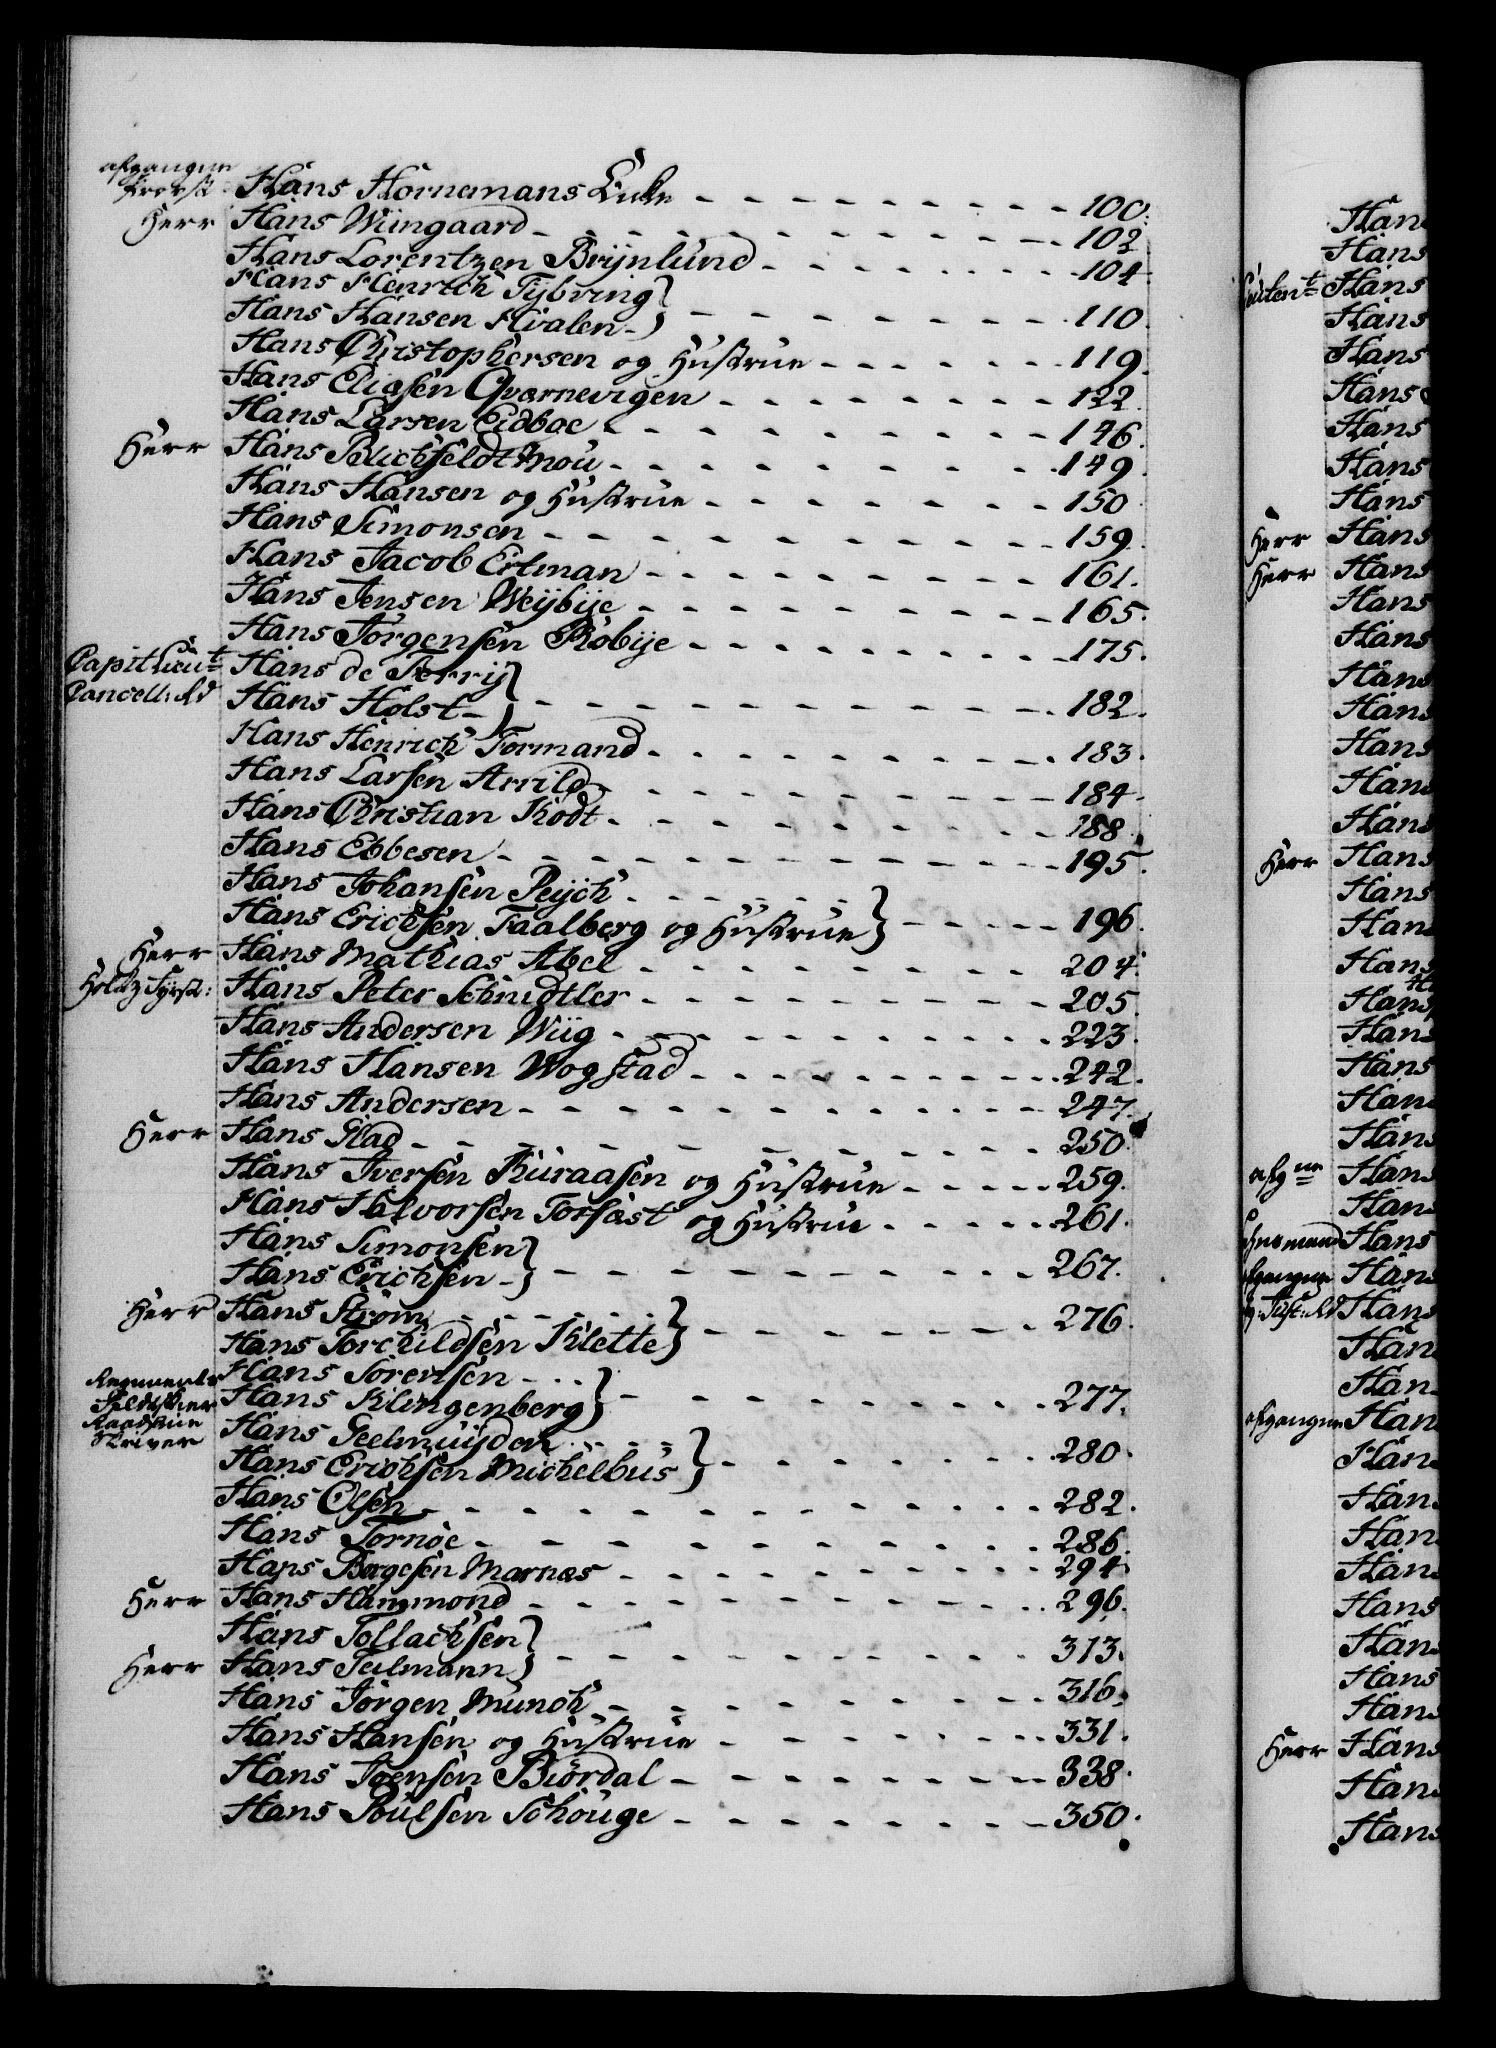 afgangne
Provst Hans Hornemans Enke 100.
Herr Hans Wiingaard 102
Hans Lorentzen Brÿnlund 104
Hans Henrich Tÿbring
Hans Hansen Hvalen 110.
Hans Christophersen og Hustrue 119.
Hans Eliasen Qvarnevigen 122.
Hans Larsen Eidboe 146.
Herr Hans Blichfeldt Mou 149.
Hans Hansen og Hustrue 150
Hans Simonsen 159.
Hans Jacob Ertman 161.
Hans Jensen Weÿbÿe 165.
Hans Jørgensen Robÿe 175.
Capit Lieut Hans de Ferrÿ
Cancell: Rd Hans Holst 182.
Hans Henrich Formand 183.
Hans Larsen Arrild 184.
Hans Christian Kodt 188.
Hans Ebbesen 195.
Hans Johansen Reÿch
Hans Erichsen Faalberg og Hustrue 196.
Herr Hans Mathias Abel 204.
Hans Peter Schnidtler 205.
Hans Andersen Wiig 223.
Hans Hansen Wogstad 242.
Hans Andersen 247.
Herr Hans Glad 250.
Hans Iversen Kuraasen og Hustrue 259.
Hans Halvorsen Torsast og Hustrue 261.
Hans Simonsen
Hans Erichsen 267.
Herr Hans Strøm
Hans Torchildsen Klette 276.
Hans Sørensen
Regiments
Feldskier Hans Klingenberg 277.
Raadstue
Skriver Hans Geelmuÿden
Hans Erichsen Michelbus 280.
Hans Olsen 282.
Hans Tornøe 286.
Hans Borgesen Marnæs 294.
Herr Hans Hammond 296.
Hans Tollachsen
Herr Hans Teilmann 313.
Hans Jørgen Munch 316.
Hans Hansen og Hustrue 331.
Hans Joensen Biørdal 338.
Hans Poulsen Schouge 350.
Han
Hans
Lieutent Hans
Hans
Hans
Hans
Hans
Hans
Hans
Herr Hans
Herr Hans
Hans
Hans
Hans
Hans
Hans
Hans
Hans
Herr Hans
Hans
Han
Hans
Hans
Han
Hans
Han
Hans
afgne Hans
Han
Hans
Hans
Hans
Han
Han
afgangne Han
Han
Han
Han
Han
Hans
Han
Hans
Hans
Herr Hans
Han
Hans